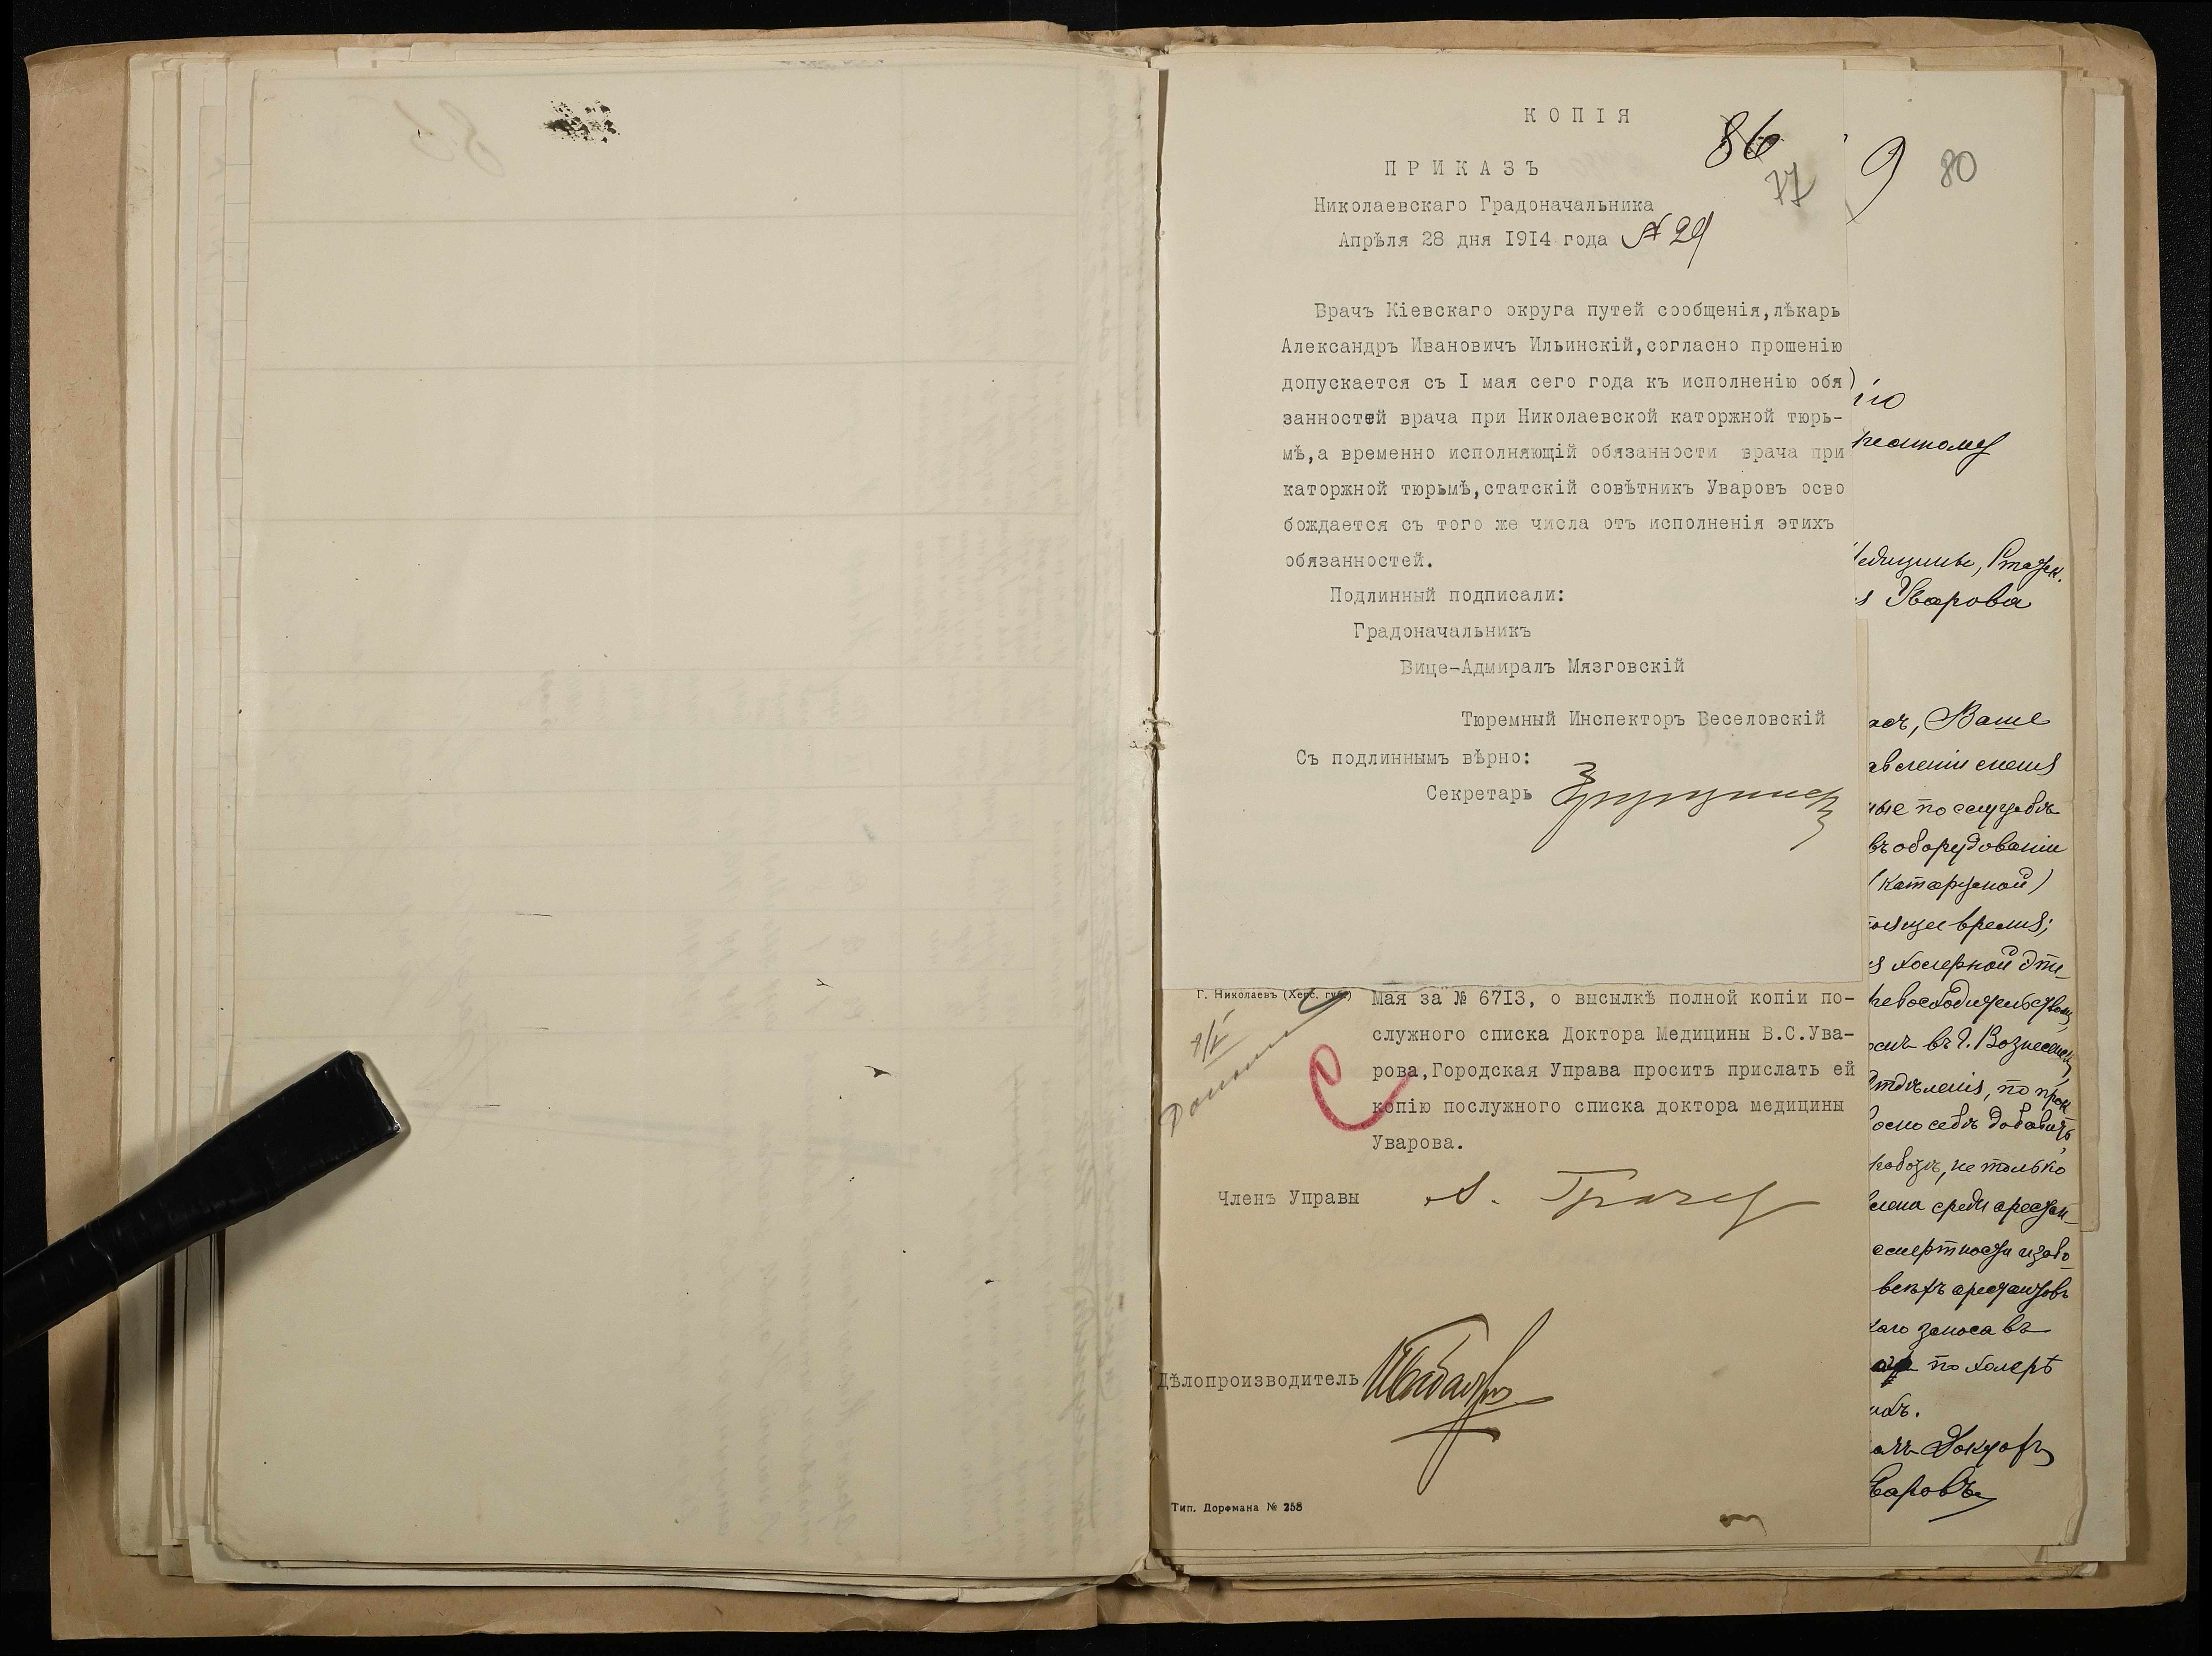 КОПІЯ
86
77
ПРИКАЗЪ
Николаевскаго Градоначальника
Апрѣля 28 дня I9I4 года № 29
Врачъ Кіевскаго округа путей сообщенія,лѣкарь
Александръ Ивановичъ Ильинскій,согласно прошенію
допускается съ I мая сего года къ исполненію обя
занностей врача при Николаевской каторжной тюрь-
мѣ,а временно исполняющій обязанности врача при
каторжной тюрьмѣ,статскій совѣтникъ Уваровъ осво
бождается съ того же числа отъ исполненія этихъ
обязанностей.
Подлинный подписали:
Градоначальникъ
Вице-Адмиралъ Мязговскій
Тюремный Инспекторъ Веселовскій
Съ подлиннымъ вѣрно:
Секретарь
Г. Николаевъ (Херс. губ.)
Мая за № 67I3, о высылкѣ полной копіи по-
служного списка Доктора Медицины В.С.Ува-
рова,Городская Управа проситъ прислать ей
копію послужного списка доктора медицины
Уварова.
Членъ Управы
Дѣлопроизводитель
Тип. Дорфмана № 258
9 80
едицины, Статск.
Уварова
Ваше
авленіи меня
ные по службѣ
въ оборудованіи
(каторжной)
тоящее время;
холерной эпи-
ревосходительством
въ г. Вознесенск
отдѣленія, по
себѣ добавить,
не только
среди арестан-
смертности
всѣхъ арестантовъ
заноса въ
по холерѣ
Докторъ
варовъ